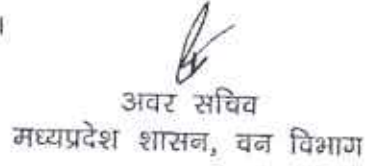 अवर सचिव
मध्यप्रदेश शासन, वन विभाग